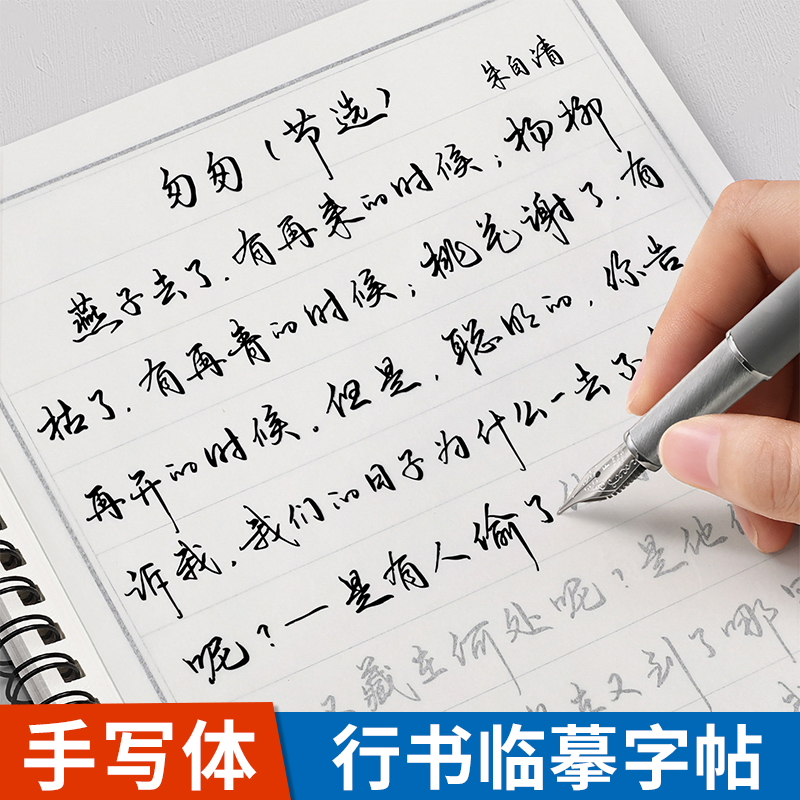 朱自清
匆匆(节选)
燕子去了,有再来的时候;杨柳
枯了,有再青的时候;桃花谢了,有
再开的时候。但是,聪明的,你告
诉我,我们的日子为什么一去不
呢?一是有人偷了
藏在何处呢?是他们
又到了哪
手写体 行书临摹字帖